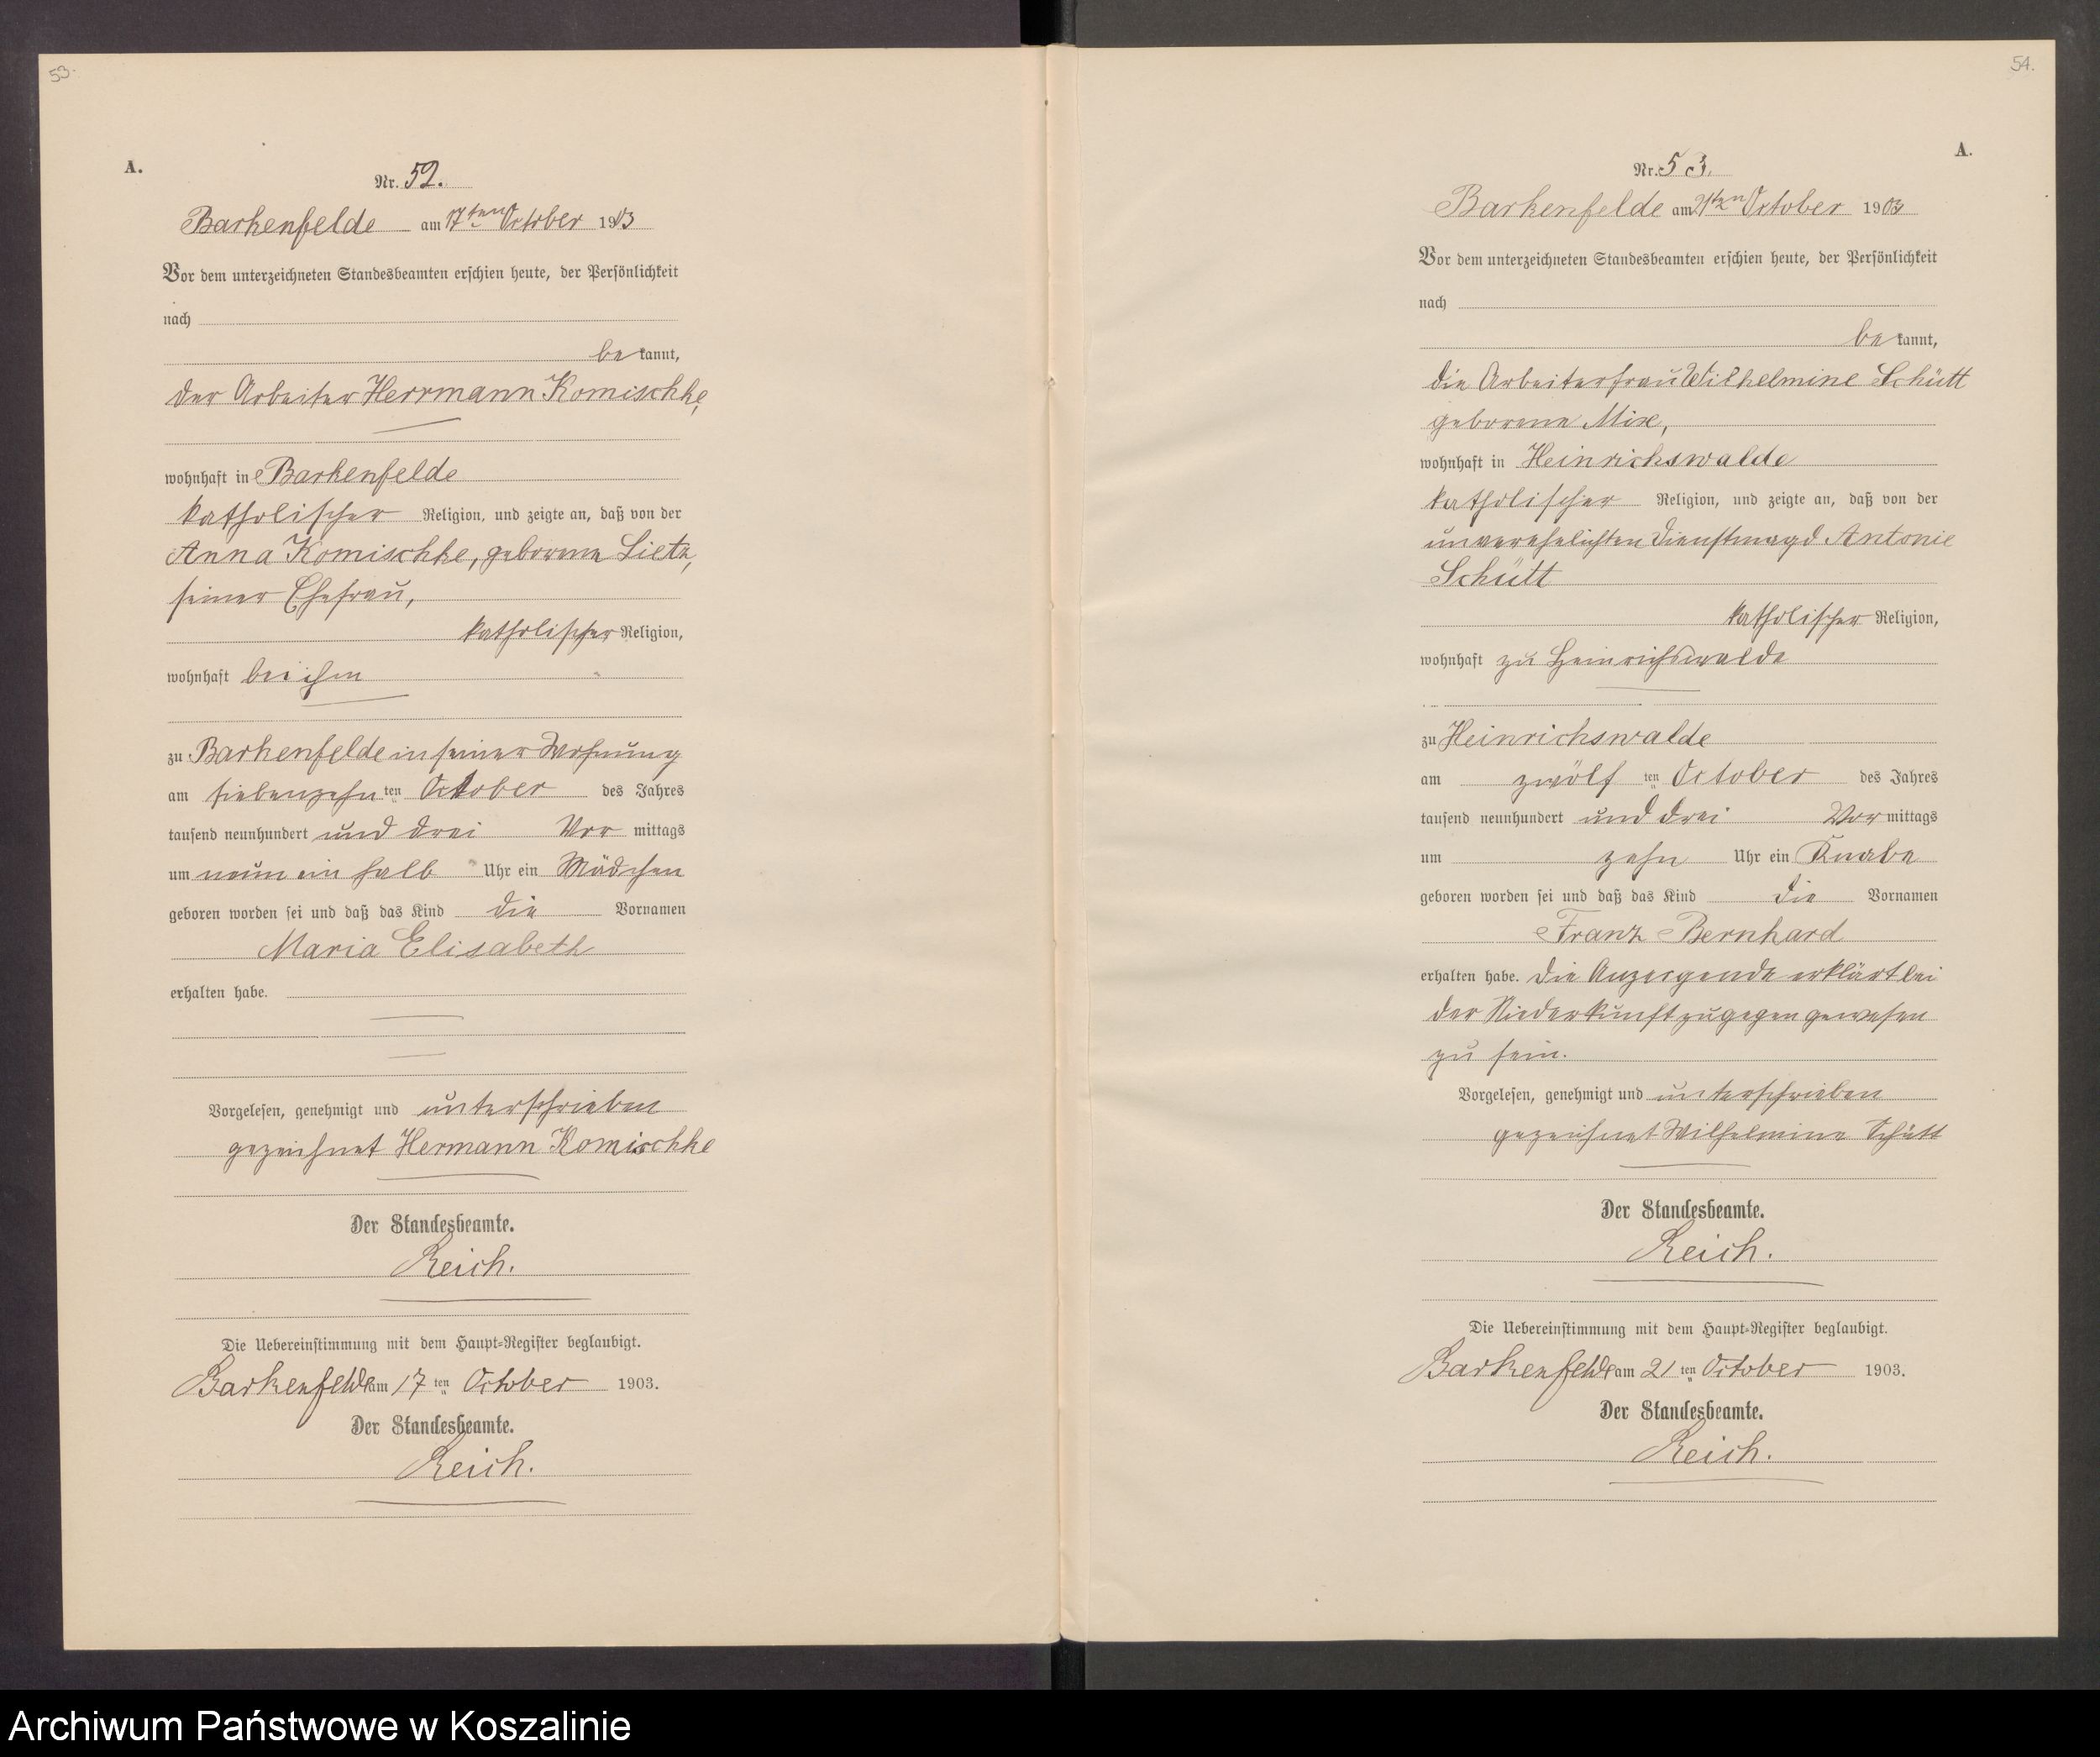 53.
A.
Nr. 52.
Barkenfelde am 17ten October 1903
Vor dem unterzeichneten Standesbeamten erschien heute, der Persönlichkeit
nach
be kannt,
der Arbeiter Herrmann Komischke,
wohnhaft in Barkenfelde
katholischer Religion, und zeigte an, daß von der
Anna Komischke, geborene Lietz,
seiner Ehefrau,
katholischer Religion,
wohnhaft bei ihm
zu Barkenfelde in seiner Wohnung
am siebenzehn ten October des Jahres
tausend neunhundert und drei Vor mittags
um neun ein halb Uhr ein Mädchen
geboren worden sei und daß das Kind die Vornamen
Maria Elisabeth
erhalten habe.
Vorgelesen, genehmigt und unterschrieben
gezeichnet Hermann Komischke
Der Standesbeamte.
Reich.
Die Uebereinstimmung mit dem Haupt-Register beglaubigt.
Barkenfelde am 17 ten October 1903.
Der Standesbeamte.
Reich.
54.
A.
Nr. 53.
Barkenfelde am 21ten October 1903
Vor dem unterzeichneten Standesbeamten erschien heute, der Persönlichkeit
nach
be kannt,
die Arbeiterfrau Wilhelmine Schütt
geborene Mix,
wohnhaft in Heinrichswalde
katholischer Religion, und zeigte an, daß von der
unverehelichten Dienstmagd Antonie
Schütt
katholischer Religion,
wohnhaft zu Heinrichswalde
zu Heinrichswalde
am zwölf ten October des Jahres
tausend neunhundert und drei Vor mittags
um zehn Uhr ein Knabe
geboren worden sei und daß das Kind die Vornamen
Franz Bernhard
erhalten habe. Die Anzeigende erklärt bei
der Niederkunft zugegen gewesen
zu sein.
Vorgelesen, genehmigt und unterschrieben
gezeichnet Wilhelmine Schütt
Der Standesbeamte.
Reich.
Die Uebereinstimmung mit dem Haupt-Register beglaubigt.
Barkenfelde am 21 ten October 1903.
Der Standesbeamte.
Reich.
Archiwum Państwowe w Koszalinie